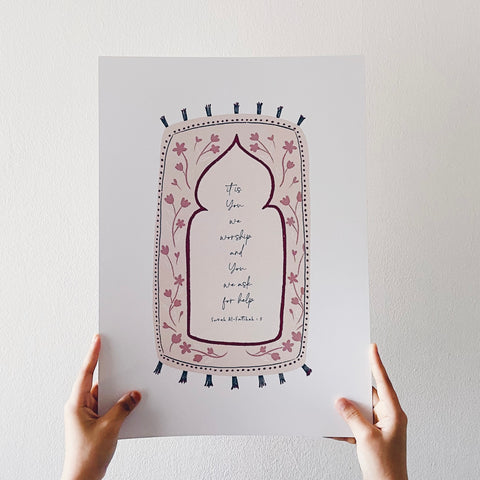 it is
You
we
worship
and
You
we ask
for help
Surah Al-Fatihah - 5